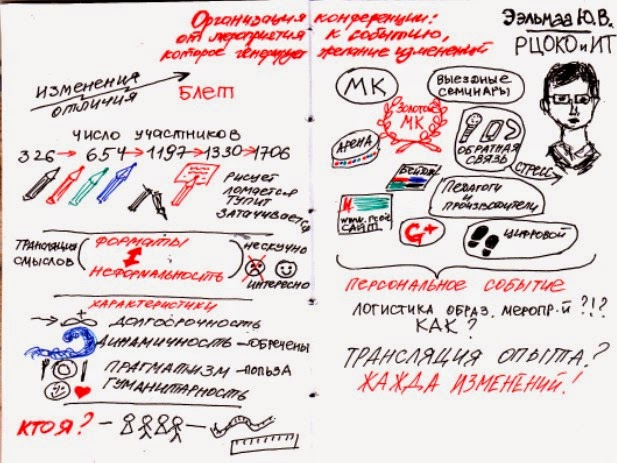 Организация конференции:
от мероприятия к событию,
которое генерирует желание изменений
Ээльмаа Ю. В.
РЦОКО и ИТ
ИЗМЕНЕНИЯ
ОТЛИЧИЯ
БЛЕТ
ЧИСЛО УЧАСТНИКОВ
326 → 654 → 1197 → 1330 → 1706
РИСУЕТ
ЛОМАЕТСЯ
ТУПИТ
ЗАТАЧИВАЕТСЯ
ТРАНСЛЯЦИЯ
СМЫСЛОВ
ФОРМАТЫ
НЕФОРМАЛЬНОСТЬ
НЕСКУЧНО
ИНТЕРЕСНО
ХАРАКТЕРИСТИКИ
ДОЛГОСРОЧНОСТЬ
ДИНАМИЧНОСТЬ – ОБРЕЧЕНЫ
ПРАГМАТИЗМ – ПОЛЬЗА
ГУМАНИТАРНОСТЬ
КТО Я?
МК
ВЫЕЗДНЫЕ
СЕМИНАРЫ
ЗОЛОТОЕ
МК
АРЕНА
ОБРАТНАЯ
СВЯЗЬ
СТРЕСС
БЕЙДЖ
ПЕДАГОГИ
И
ПРОИЗВОДИТЕЛИ
САЙТ
G+
ЦИФРОВОЙ
ПЕРСОНАЛЬНОЕ СОБЫТИЕ
ЛОГИСТИКА ОБРАЗ. МЕРОПР-Й ?!?
КАК?
ТРАНСЛЯЦИЯ ОПЫТА?
ЖАЖДА ИЗМЕНЕНИЙ!